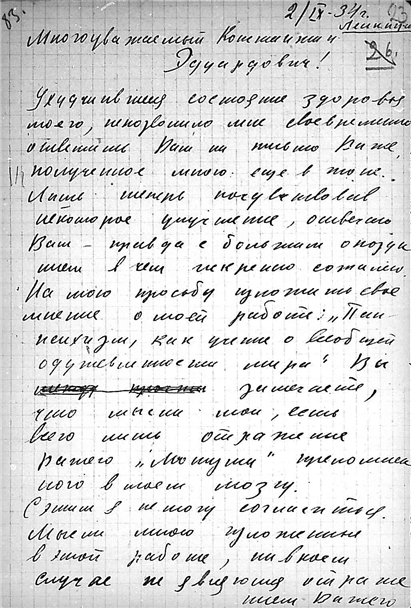 83.
2/IX-34г. 93
Ленингр
26.
Многоуважаемый Константин
Эдуардович!
Ухудчившееся состояние здоровья
моего, непозволило мне своевременно
ответить Вам на письмо Ваше,
полученное мною еще в июне.
Лишь теперь почувствовав
некоторое улучшение, отвечаю
Вам – правда с большим опозда
нием в чем искренно сожалею.
На мою просьбу изложить свое
мнение о моей работе: „Пан-
психизм, как учение о всеобщей
одушевленности мира" Вы
замечаете,
что мысли мои, есть
всего лишь отражение
Вашего „Монизма" преломлен
ного в моем мозгу.
С этим я не могу согласиться.
Мысли мною изложенные
в этой работе, ни в коем
случае не являются отраже
нием Вашего